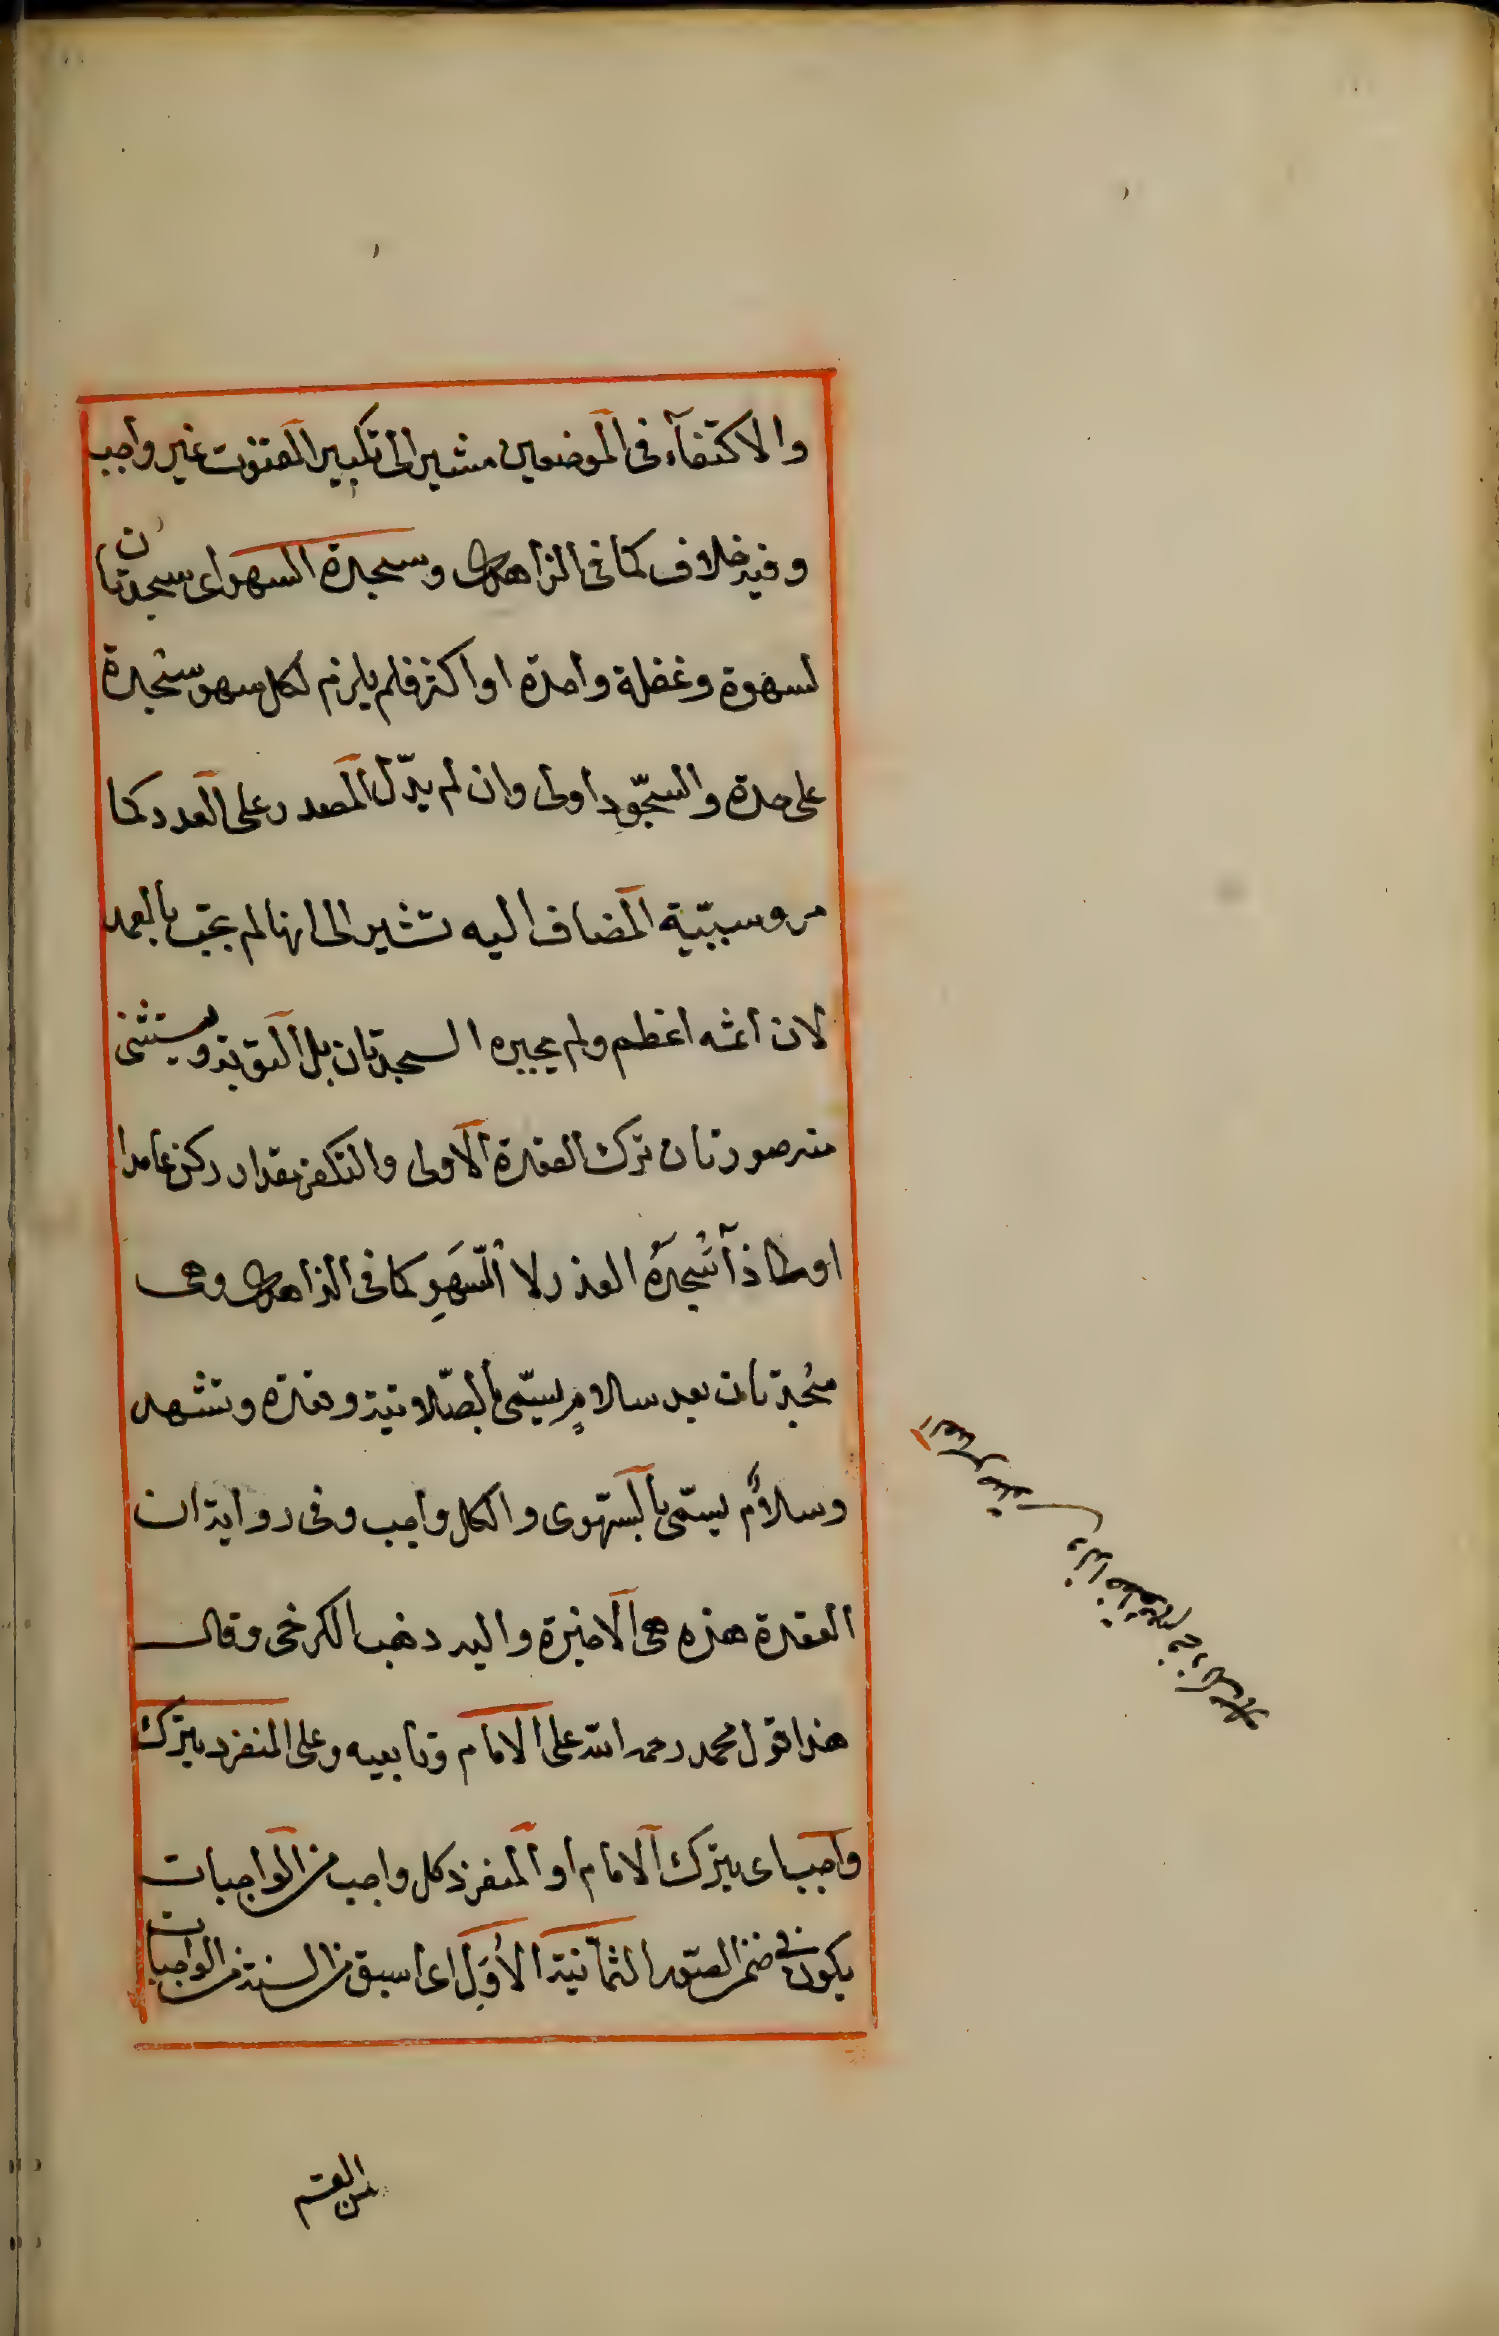 والاكتفآء فى الموضعين مشير الى تكبير القنوت غير واجب
وفيه خلاف كما فى الزاهدى وسجدة السهو اى سجدتان
لسهوة وغفلة واحدة او اكثر فلم يلزم لكل سهو سجدة
على حدة والسجود اولى وان لم يدل المصدر على العدد كما
مر وسببية المضاف اليه تشير الى انها لم تجب بالعمد
لان اثمه اعظم ولم يجبره السجدتان بل التوبة ويستثنى
منه صورتان ترك القعدة الاولى والتفكر مقدار ركن عامدا
سجدة العذر لا السهو كما فى الزاهدى وهى
سجدتان بعد سلام يسمى بالصلاتية وقعدة وتشهد
وسلام يسمى بالسهوى والكل واجب وفى رواية ان
القعدة هذه هى الاخيرة واليه ذهب الكرخى وقال
هذا قول محمد رحمه الله على الامام وتابعيه وعلى المنفرد بترك
واجب اى بترك الامام او المنفرد كل واجب من الواجبات
يكون فى ضمن الصور الثمانية الأول اى اسبق من الستة من الواجبات
من القسم